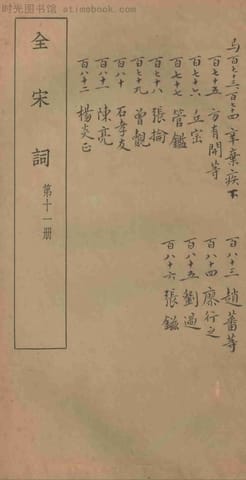 时光图书馆 - atimebook.com
百七十三百七十四 辛棄疾下
百七十五 方有開等
百七十六 丘崈
百七十七 管鑑
百七十八 張掄
百七十九 曾覿
百八十 石孝友
百八十一 陳亮
百八十二 楊炎正
百八十三 趙蕃等
百八十四 廖行之
百八十五 劉過
百八十六 張鎡
全宋詞 第十一册